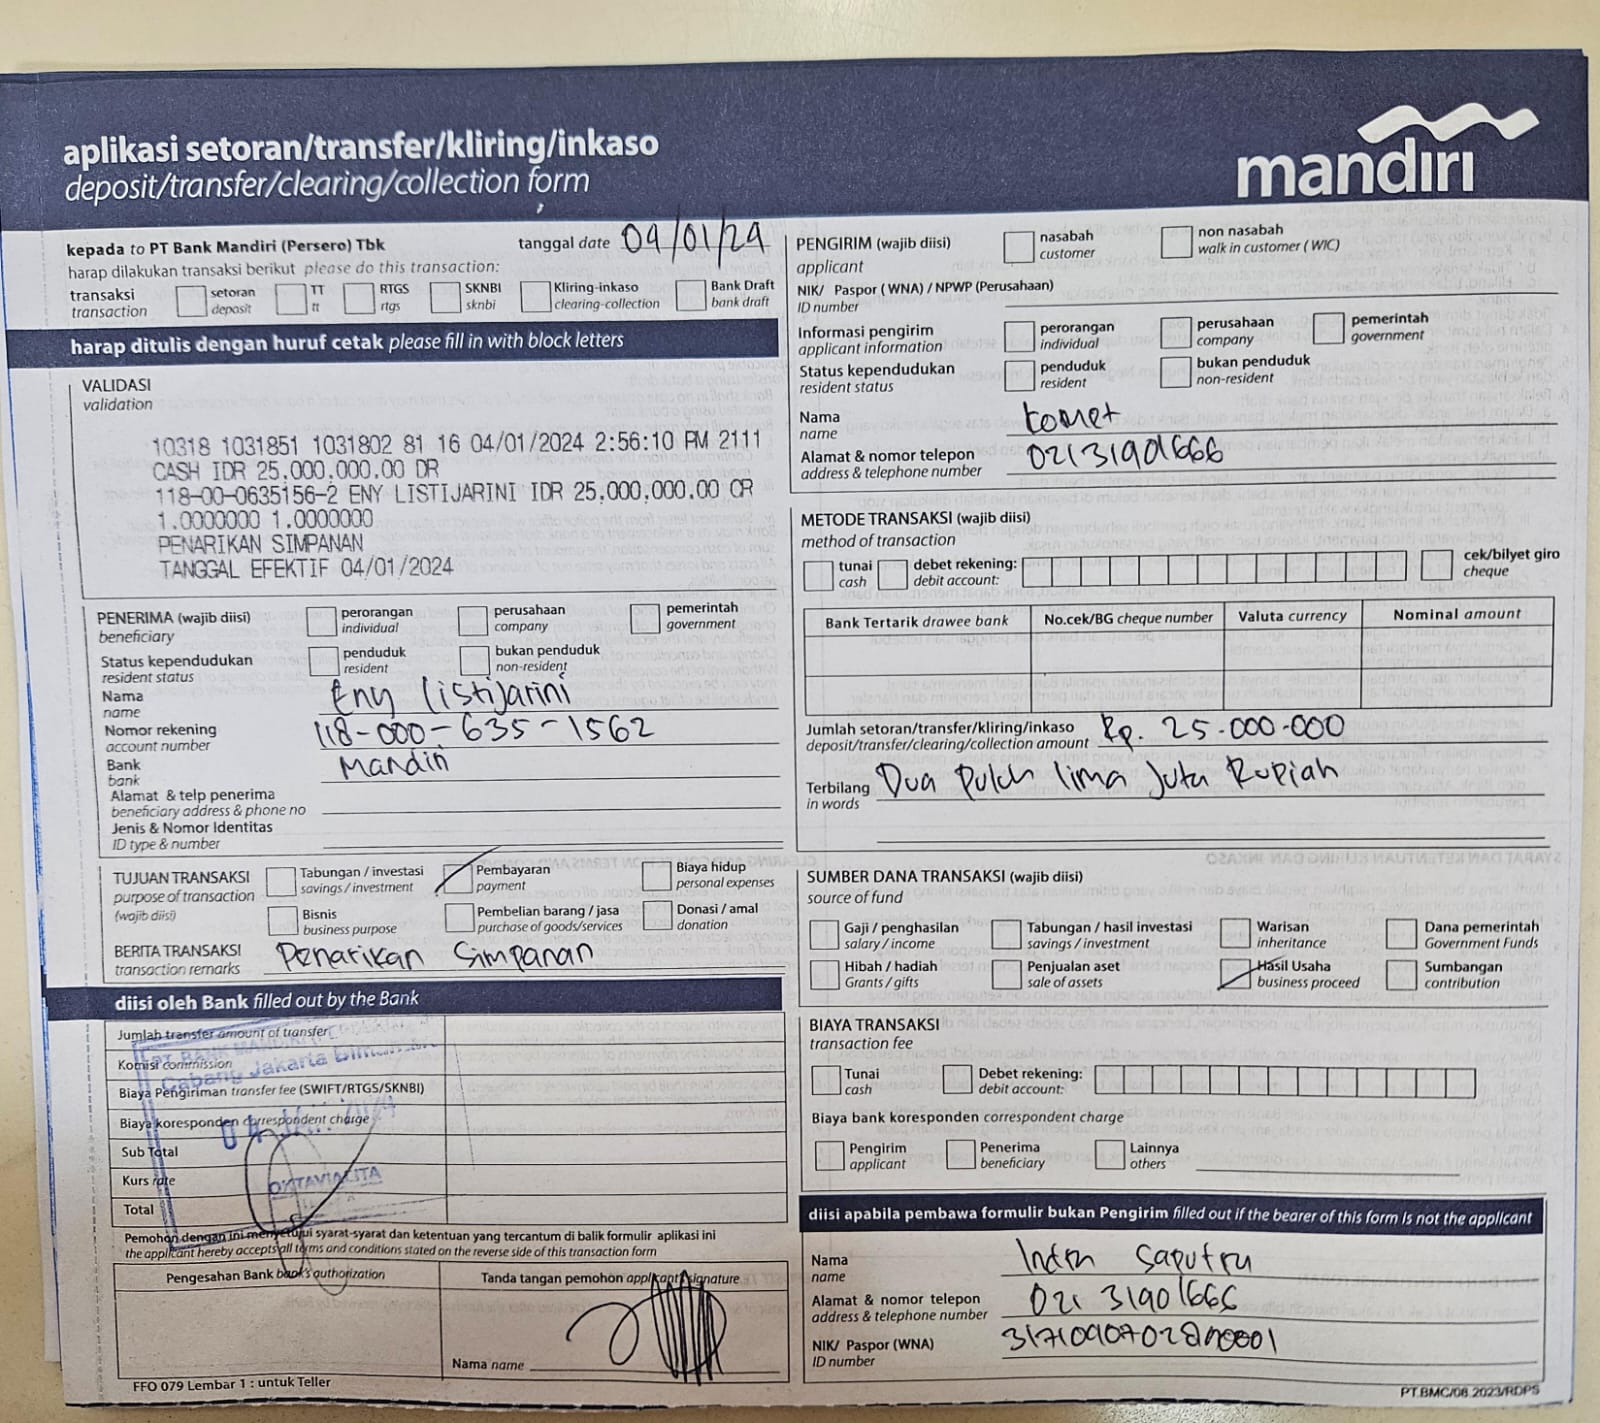 aplikasi setoran/transfer/kliring/inkaso
deposit/transfer/clearing/collection form
mandiri
kepada to PT Bank Mandiri (Persero) Tbk
tanggal date 04/01/24
harap dilakukan transaksi berikut please do this transaction:
transaksi transaction
setoran deposit
TT tt
RTGS rtgs
SKNBI sknbi
Kliring-inkaso clearing-collection
Bank Draft bank draft
harap ditulis dengan huruf cetak please fill in with block letters
VALIDASI
validation
10318 1031851 1031802 81 16 04/01/2024 2:56:10 PM 2111
CASH IDR 25,000,000.00 DR
118-00-0635156-2 ENY LISTIJARINI IDR 25,000,000.00 CR
1.0000000 1.0000000
PENARIKAN SIMPANAN
TANGGAL EFEKTIF 04/01/2024
PENERIMA (wajib diisi)
beneficiary
perorangan individual
perusahaan company
pemerintah government
Status kependudukan
resident status
penduduk resident
bukan penduduk non-resident
Nama
name
Eny Listijarini
Nomor rekening
account number
118-000-635-1562
Bank
bank
Mandiri
Alamat & telp penerima
beneficiary address & phone no
Jenis & Nomor Identitas
ID type & number
TUJUAN TRANSAKSI
purpose of transaction
(wajib diisi)
Tabungan / investasi savings / investment
Pembayaran payment
Biaya hidup personal expenses
Bisnis business purpose
Pembelian barang / jasa purchase of goods/services
Donasi / amal donation
BERITA TRANSAKSI
transaction remarks
Penarikan Simpanan
diisi oleh Bank filled out by the Bank
Jumlah transfer amount of transfer
Komisi commission
Biaya Pengiriman transfer fee (SWIFT/RTGS/SKNBI)
Biaya koresponden correspondent charge
Sub Total
Kurs rate
Total
PT. BANK MANDIRI
Cabang Jakarta
OKTAVIALITA
Pemohon dengan ini menyetujui syarat-syarat dan ketentuan yang tercantum di balik formulir aplikasi ini
the applicant hereby accepts all terms and conditions stated on the reverse side of this transaction form
Pengesahan Bank bank's authorization
Tanda tangan pemohon applicant signature
Nama name
FFO 079 Lembar 1 : untuk Teller
PENGIRIM (wajib diisi)
applicant
nasabah customer
non nasabah walk in customer ( WIC)
NIK/ Paspor ( WNA) / NPWP (Perusahaan)
ID number
Informasi pengirim
applicant information
perorangan individual
perusahaan company
pemerintah government
Status kependudukan
resident status
penduduk resident
bukan penduduk non-resident
Nama
name
Komet
Alamat & nomor telepon
address & telephone number
02131901666
METODE TRANSAKSI (wajib diisi)
method of transaction
tunai cash
debet rekening: debit account:
cek/bilyet giro cheque
Bank Tertarik drawee bank
No.cek/BG cheque number
Valuta currency
Nominal amount
Jumlah setoran/transfer/kliring/inkaso
deposit/transfer/clearing/collection amount
Rp. 25.000.000
Terbilang
in words
Dua Puluh lima Juta Rupiah
SUMBER DANA TRANSAKSI (wajib diisi)
source of fund
Gaji / penghasilan salary / income
Tabungan / hasil investasi savings / investment
Warisan inheritance
Dana pemerintah Government Funds
Hibah / hadiah Grants / gifts
Penjualan aset sale of assets
Hasil Usaha business proceed
Sumbangan contribution
BIAYA TRANSAKSI
transaction fee
Tunai cash
Debet rekening: debit account:
Biaya bank koresponden correspondent charge
Pengirim applicant
Penerima beneficiary
Lainnya others
diisi apabila pembawa formulir bukan Pengirim filled out if the bearer of this form is not the applicant
Nama
name
Indra Saputra
Alamat & nomor telepon
address & telephone number
021 31901666
NIK/ Paspor (WNA)
ID number
PT.BMC/08.2023/RDPS